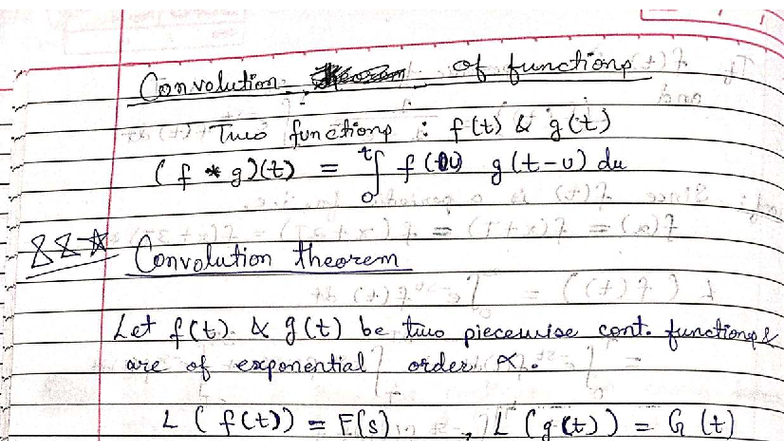 Convolution of functions
Two functions : f(t) & g(t)
(f * g)(t) = ∫₀ᵗ f(u) g(t-u) du
Convolution theorem
Let f(t) & g(t) be two piecewise cont. functions &
are of exponential order α.
L(f(t)) = F(s), L(g(t)) = G(t)